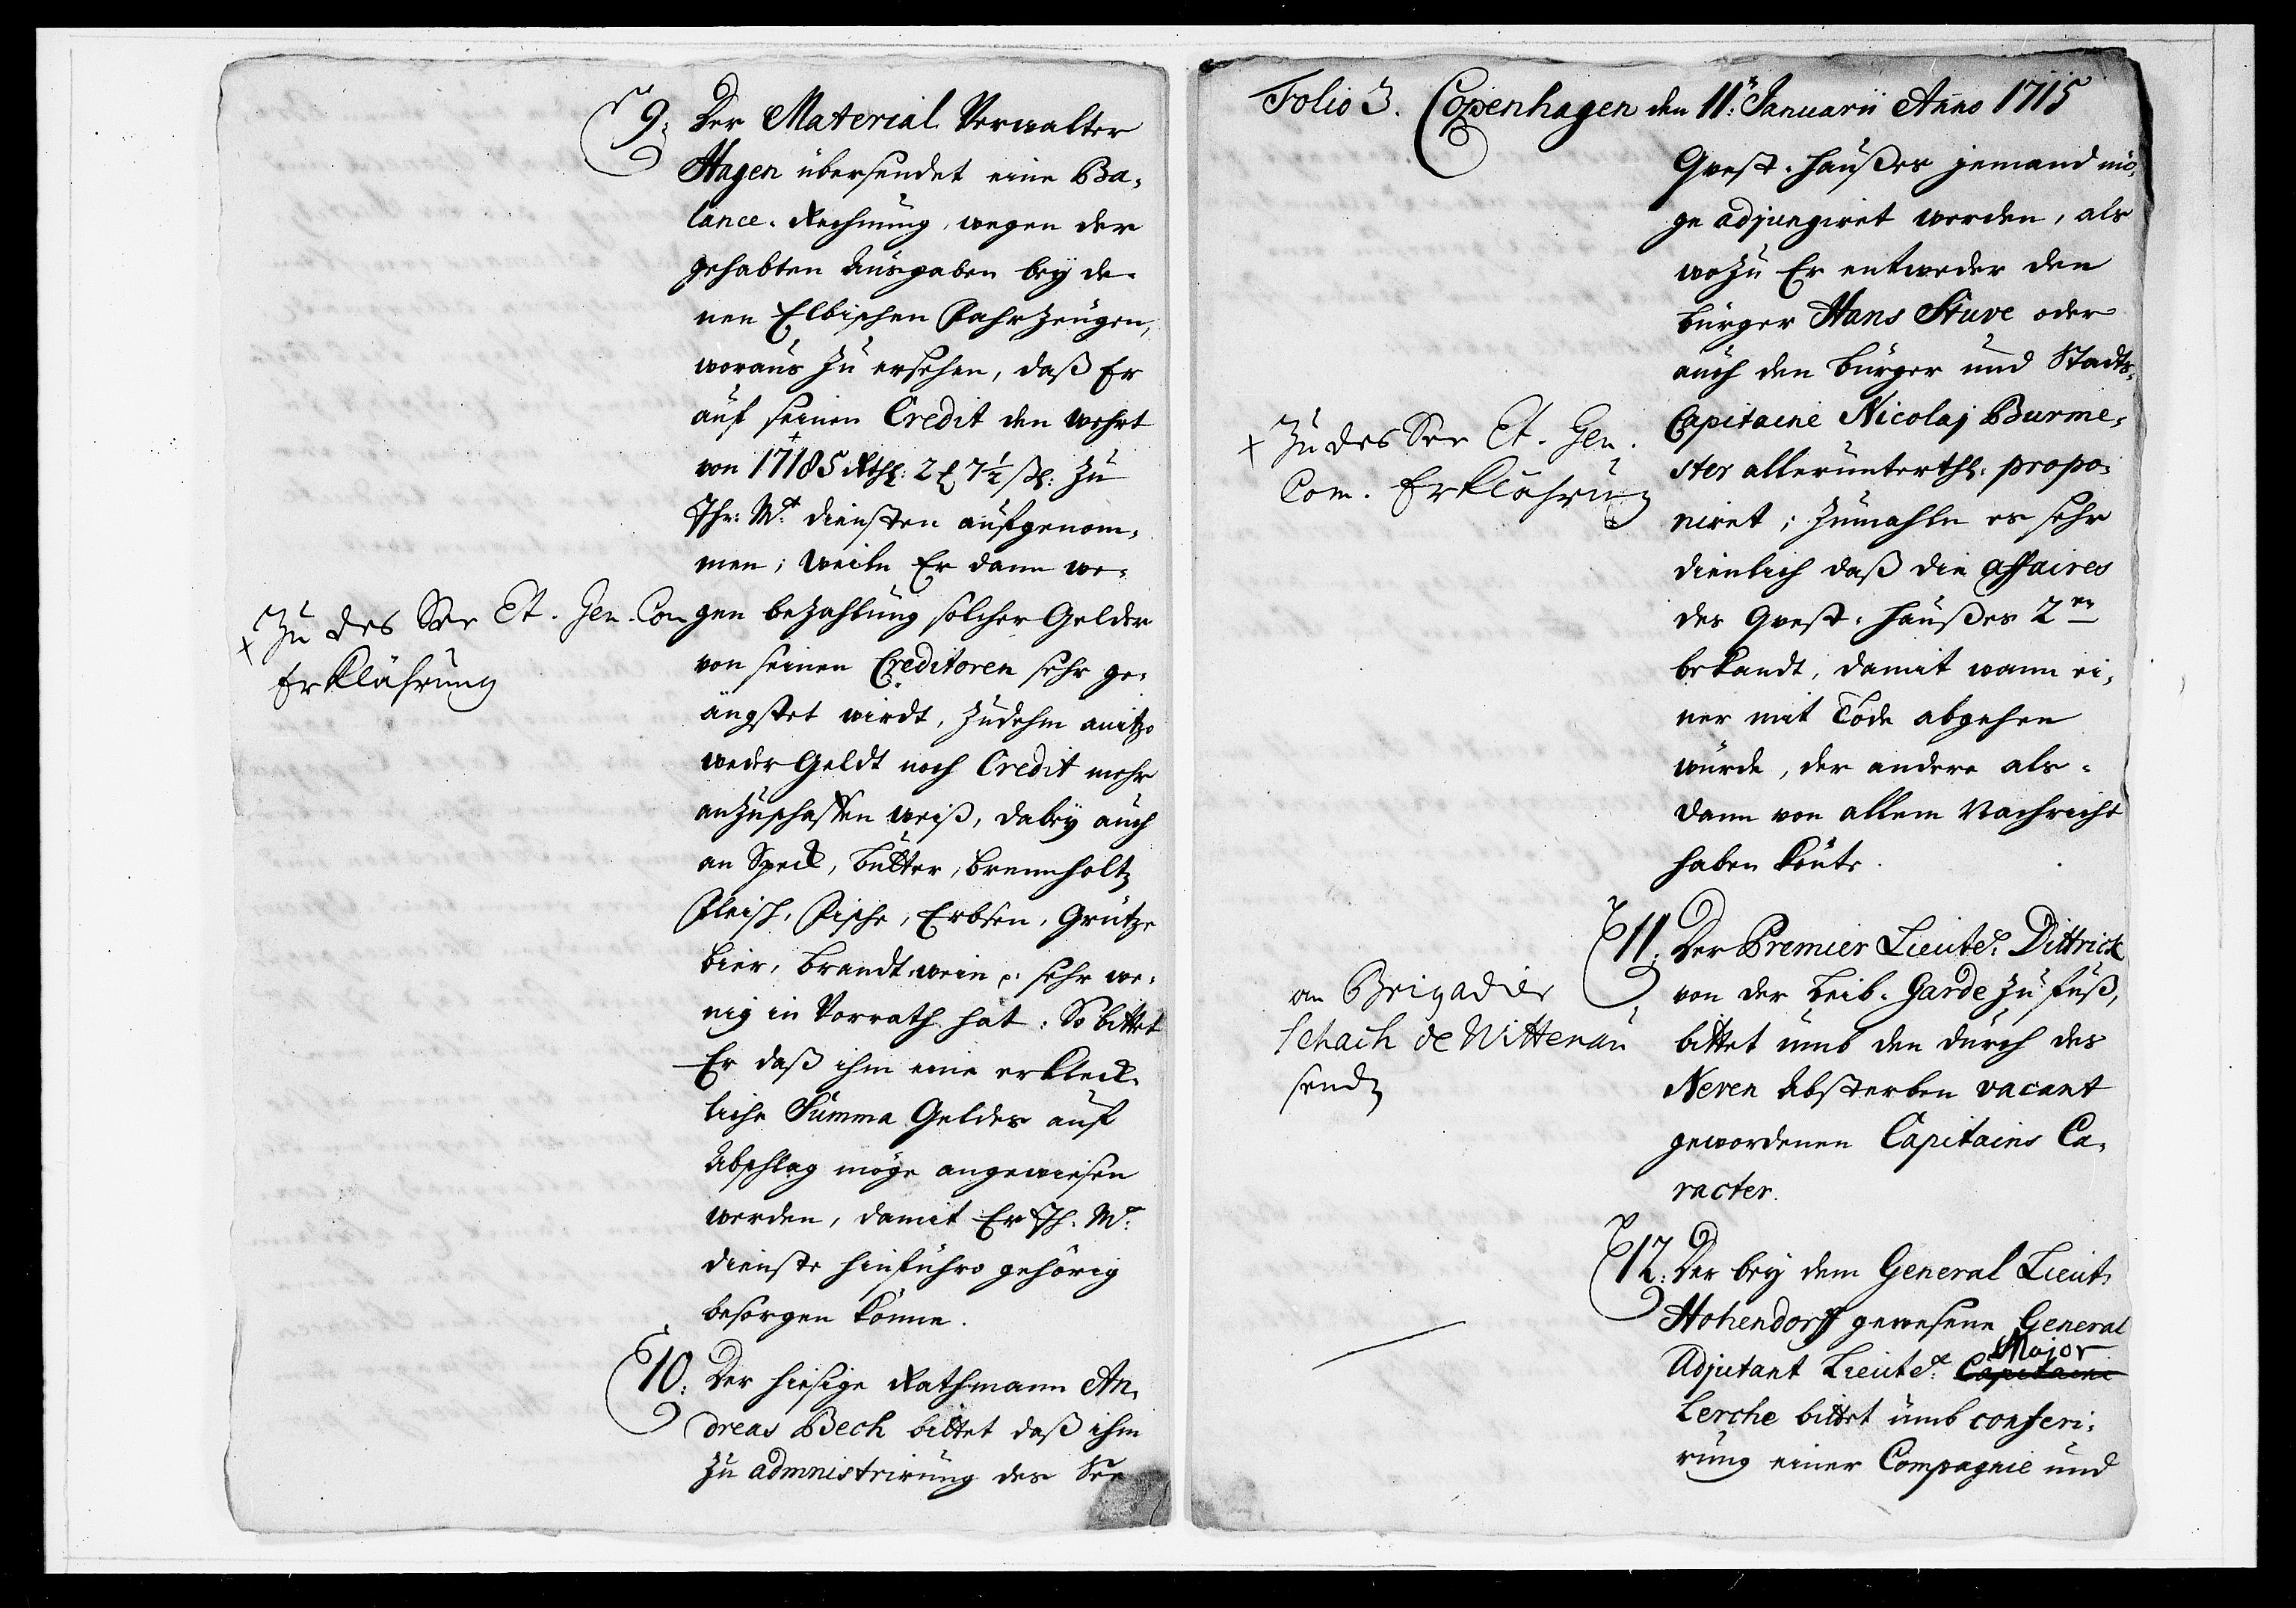 9. Der Material Verwalter
Hagen übersendet eine Ba-
lance-Rechnung, wegen der
gehabten Ausgaben bey de-
nen Elbischen Fahrzeugen,
woraus zu ersehen, daß Er
auf seinen Credit den wehrt
von 17185 Rthl: 2 ₤ 7½ ßl: zu
Ihr: Mt diensten aufgenom-
men; Weiln Er dann we-
gen bezahlung solcher Gelder
von seinen Creditoren sehr ge-
ängstet wirdt, zudehm anitzo
weder Geldt noch Credit mehr
anzuschaffen weiß, dabey auch
an Speck, Butter, Brennholtz
Fleisch, Fische, Erbsen, Grütze
bier, brandtwein p. sehr we-
nig in Vorrath hat: So bittet
Er daß ihm eine erkleck-
liche Summa Geldes auf
Abschlag möge angewiesen
werden, damit Er Ih. Mt:
dienste hinführo gehörig
besorgen könne.
x Zu des See Et. Gen. Com
Erklährung
10. Der hiesige Rathmann An-
dreas Bech bittet daß ihm
zu admnistrirung des See
Folio 3. Copenhagen den 11: Januarii Anno 1715
Qvest-Haußes jemand mö-
ge adjungiret werden, als
wozu Er entweder den
bürger Hans Stuve oder
auch den bürger und Stadts-
Capitaine Nicolaj Burme-
ster allerunterthl: propo-
niret; zumahln es sehr
dienlich daß die affaires
des Qvest-Haußes 2en
bekandt, damit wann ei-
ner mit Tode abgehen
würde, der andere als-
dann von allem Nachricht
haben könte.
x Zu des See Et. Gen.
Com. Erklährung
11. Der Premier Lieutet: Dittrick
von der Leib-Garde zu fuß,
bittet umb den durch des
Neren Absterben vacant
gewordenen Capitains Ca-
racter.
an Brigadier
Schach de Wittenau
send
12. Der bey dem General Lieut:
Hohendorff gewesene General
Adjutant Lieutet: Capitaine Major
Lerche bittet umb conferi-
rung einer Compagnie und